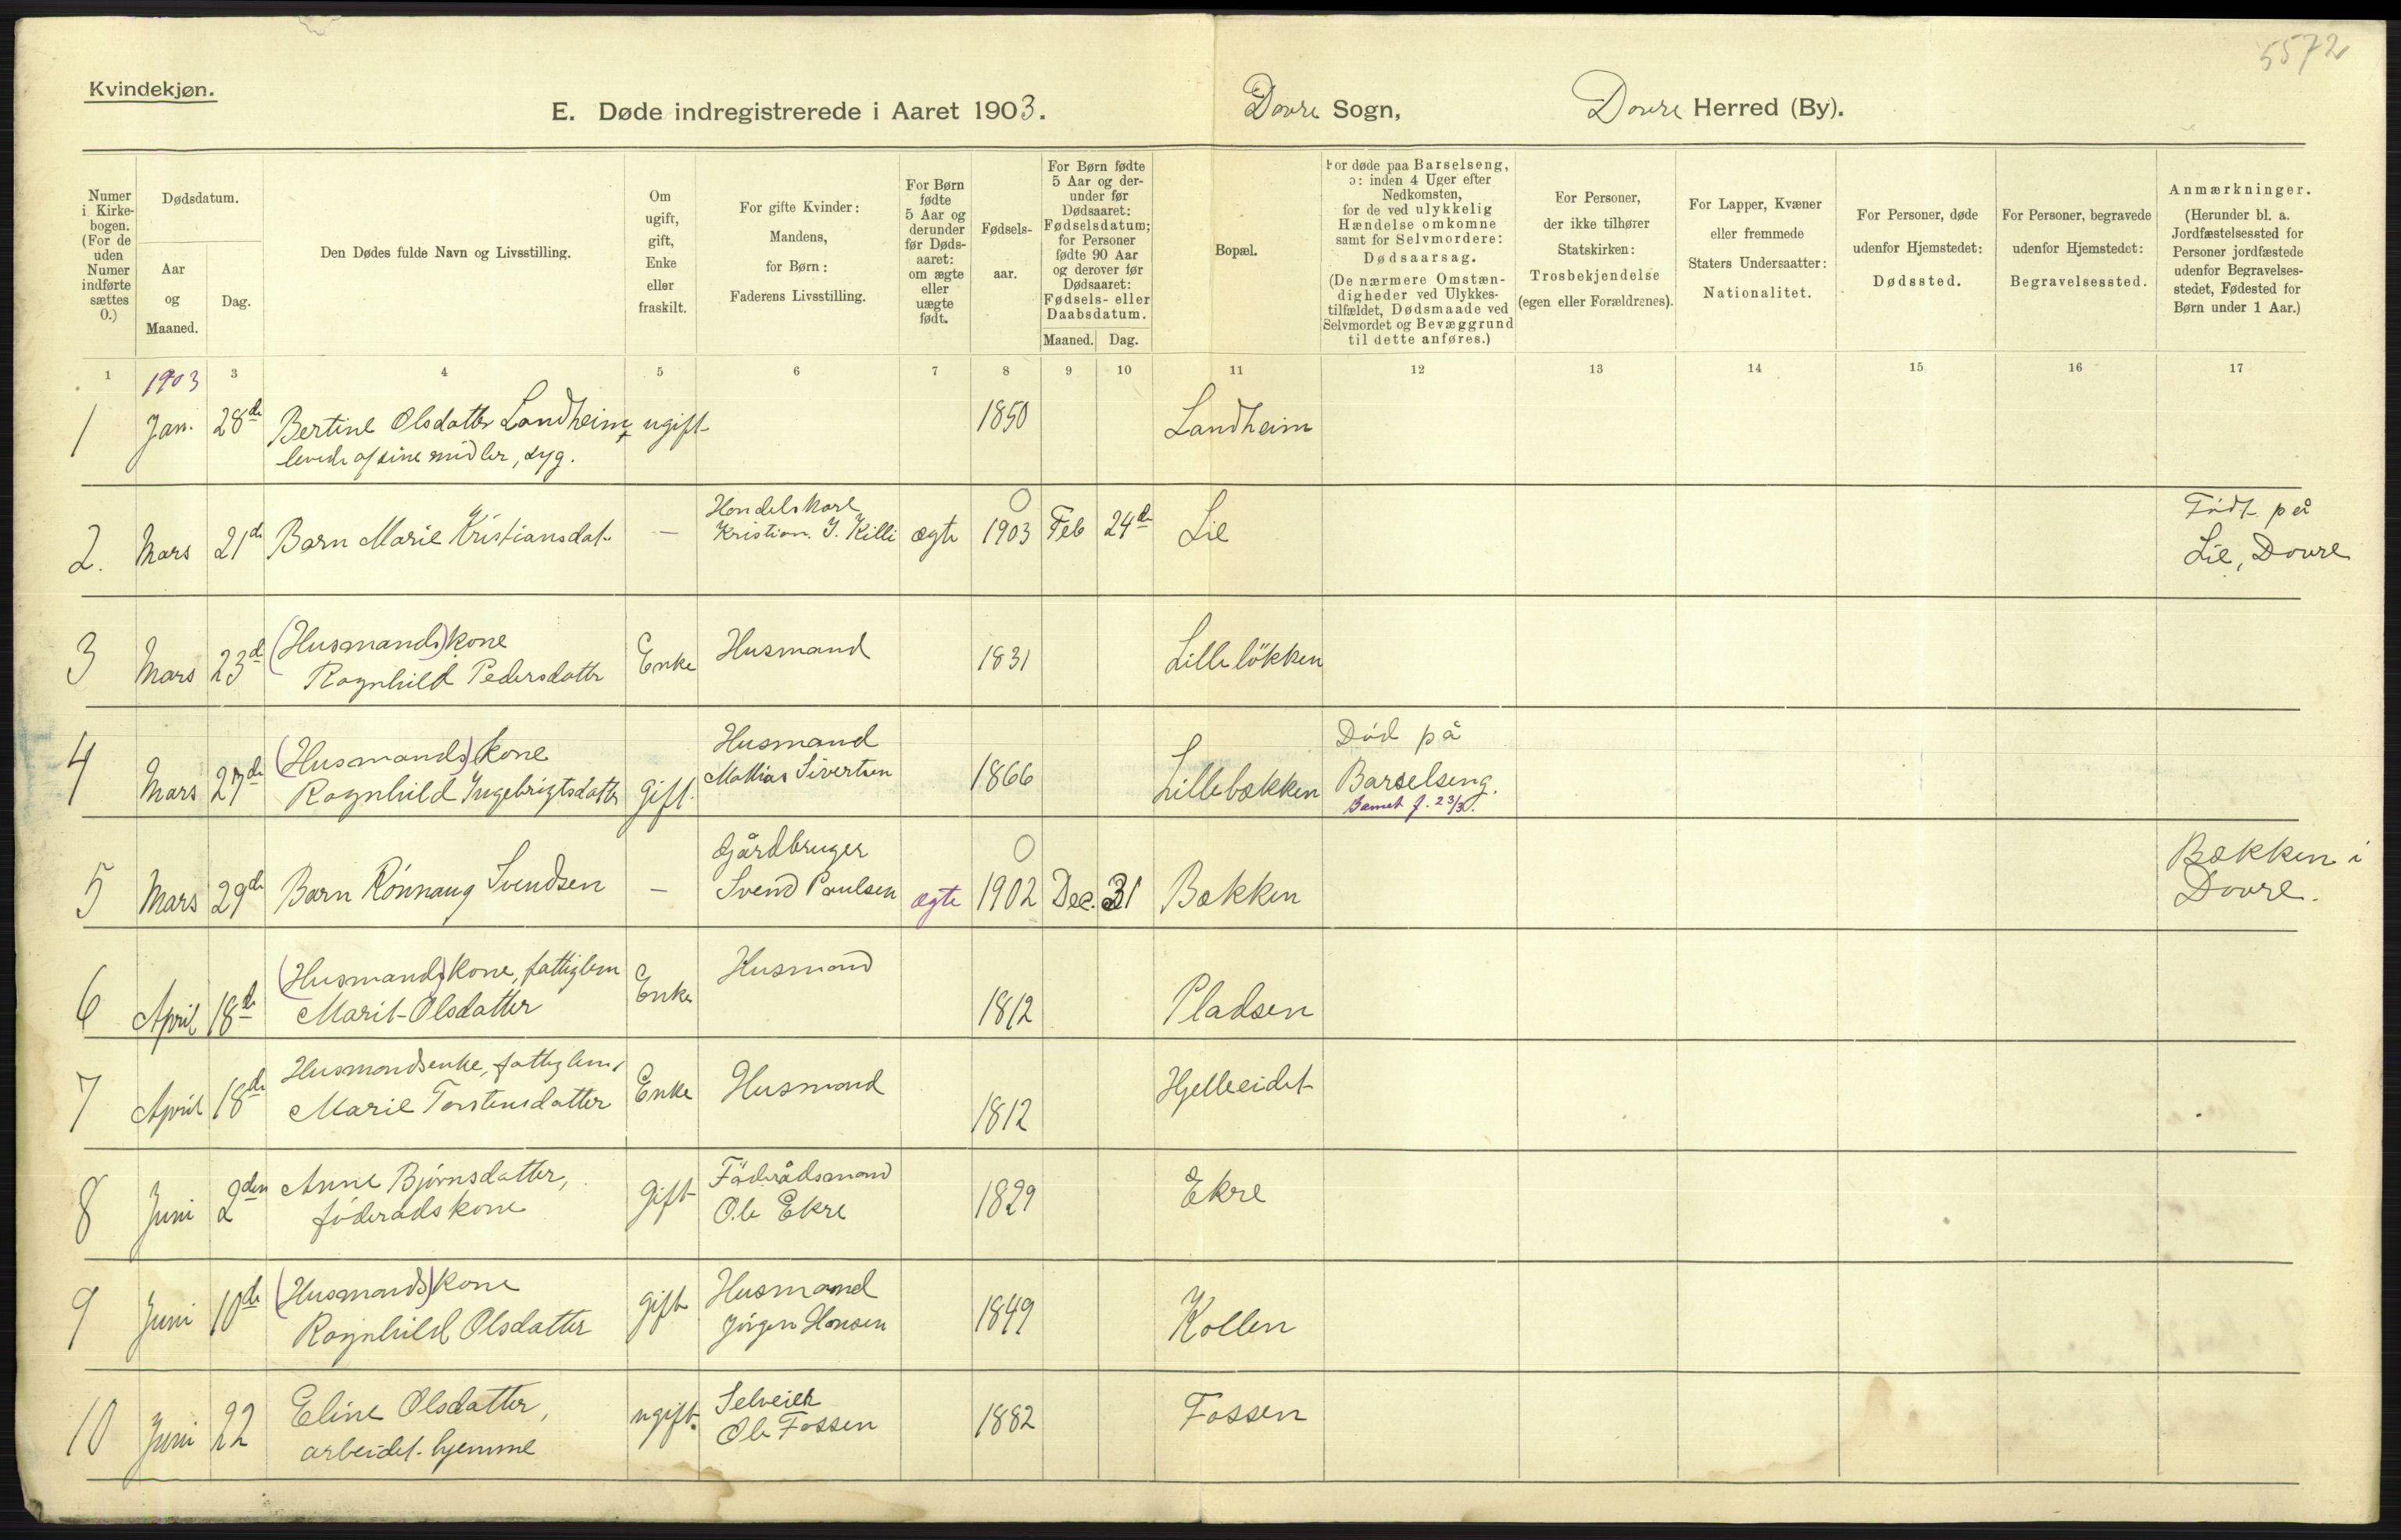 5572
Kvindekjøn.
E. Døde indregistrerede i Aaret 1903. Dovre Sogn, Dovre Herred (By).
Numer i Kirkebogen. (For de uden Numer indførte sættes 0.)
Dødsdatum.
Aar og Maaned.
Dag.
Den Dødes fulde Navn og Livsstilling.
Om ugift, gift, Enke eller fraskilt.
For gifte Kvinder: Mandens, for Børn: Faderens Livsstilling.
For Børn fødte 5 Aar og derunder før Dødsaaret: om ægte eller uægte født.
Fødselsaar.
For Børn fødte 5 Aar og derunder før Dødsaaret: Fødselsdatum; for Personer fødte 90 Aar og derover før Dødsaaret: Fødsels- eller Daabsdatum.
Maaned. Dag.
Bopæl.
For døde paa Barselseng, ɔ: inden 4 Uger efter Nedkomsten, for de ved ulykkelig Hændelse omkomne samt for Selvmordere: Dødsaarsag. (De nærmere Omstændigheder ved Ulykkestilfældet, Dødsmaade ved Selvmordet og Bevæggrund til dette anføres.)
For Personer, der ikke tilhører Statskirken: Trosbekjendelse (egen eller Forældrenes).
For Lapper, Kvæner eller fremmede Staters Undersaatter: Nationalitet.
For Personer, døde udenfor Hjemstedet: Dødssted.
For Personer, begravede udenfor Hjemstedet: Begravelsessted.
Anmærkninger. (Herunder bl. a. Jordfæstelsessted for Personer jordfæstede udenfor Begravelsesstedet, Fødested for Børn under 1 Aar.)
1 1903 3 4 5 6 7 8 9 10 11 12 13 14 15 16 17
1 Jan. 28de Bertine Olsdatter Landheim ugift 1850 Landheim
levede af sine midler, syg.
Handelskarl 0 Født på
2. Mars 21de Barn Marie Kristiansdat. — Kristian. J. Killi ægte 1903 Feb 24de Lie Lie, Dovre
(Husmands)kone
3 Mars 23d Ragnhild Pedersdatter Enke Husmand 1831 Lilleløkken
(Husmands)kone Husmand Død på
4 Mars 27de Ragnhild Ingebrigtsdatter gift. Mathias Sivertsen 1866 Lillebækken Barselseng.
Barnet f. 23/3.
Gårdbruger 0 Bækken i
5 Mars 29de Barn Rønnaug Svendsen — Svend Paulsen ægte 1902 Dec. 31 Bækken Dovre.
(Husmands)kone, fattiglem
6 April 18de Marit Olsdatter Enke Husmand 1812 Pladsen
Husmandsenke, fattiglem,
7 April 18de Marie Torstensdatter Enke Husmand 1812 Hjelleeidet
Anne Bjørnsdatter, Føderådsmand
8 Juni 2den føderådskone gift Ole Ekre 1829 Ekre
(Husmands)kone Husmand
9 Juni 10de Ragnhild Olsdatter gift Jørgen Hansen 1849 Kollen
Eline Olsdatter, Selveier
10 Juni 22 arbeidet hjemme ugift. Ole Fossen 1882 Fossen